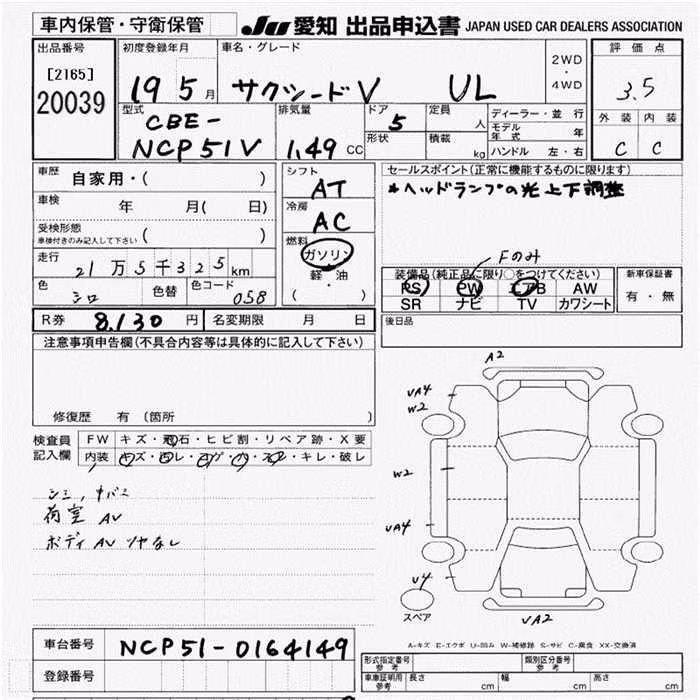 車内保管・守衛保管 JU 愛知 出品申込書 JAPAN USED CAR DEALERS ASSOCIATION
出品番号 初度登録年月 車名・グレード 2WD・4WD 評価点
[2165] 19 5月 サクシードV UL 3.5
20039
型式 排気量 ドア 5 定員 人 ディーラー・並行 外装 内装
CBE- モデル年式 年 C C
NCP51V 1.49 CC 形状 積載 kg ハンドル 左・右
車歴 自家用・( ) シフト セールスポイント(正常に機能するものに限ります)
AT *ヘッドランプの光上下調整
車検 年 月( 日) 冷房
AC
受検形態 ( )
車検付きのみ記入して下さい 燃料
ガソリン Fのみ
走行 21万5千325km 軽・油 装備品(純正品に限り○をつけてください) 新車保証書
色 シロ 色替 色コード 058 ( ) PS PW エアB AW 有・無
SR ナビ TV カワシート
R券 8,130円 名変期限 月 日 後日品
注意事項申告欄(不具合内容等は具体的に記入して下さい)
A2
UA4
W2
修復歴 有 (箇所 )
検査員 FW キズ・飛石・ヒビ割・リペア跡・X要
記入欄 内装 キズ・汚レ・コゲ・穴・スレ・キレ・破レ
W2
シミ、ナバミ
荷室 AV
UA4
ボディAV ツヤなし
U4
スペア
UA2
A-キズ E-エクボ U-凹み W-補修跡 S-サビ C-腐食 XX-交換済
車台番号 NCP51-0164149
型式指定番号 参考 類別区分番号 参考
登録番号 車庫証明用 参考 長さ cm 幅 cm 高さ cm